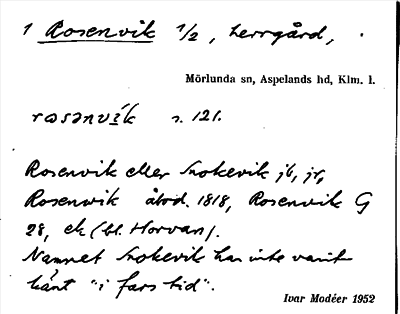 1 Rosenvik 1/2, herrgård,
Mörlunda sn, Aspelands hd, Klm. l.
rosənvik s. 121.
Rosenvik eller Snokevik jb, jr,
Rosenvik åbod. 1818, Rosenvik G
28, ek (bl. Horvan).
Namnet Snokevik har inte varit
känt "i fars tid".
Ivar Modéer 1952